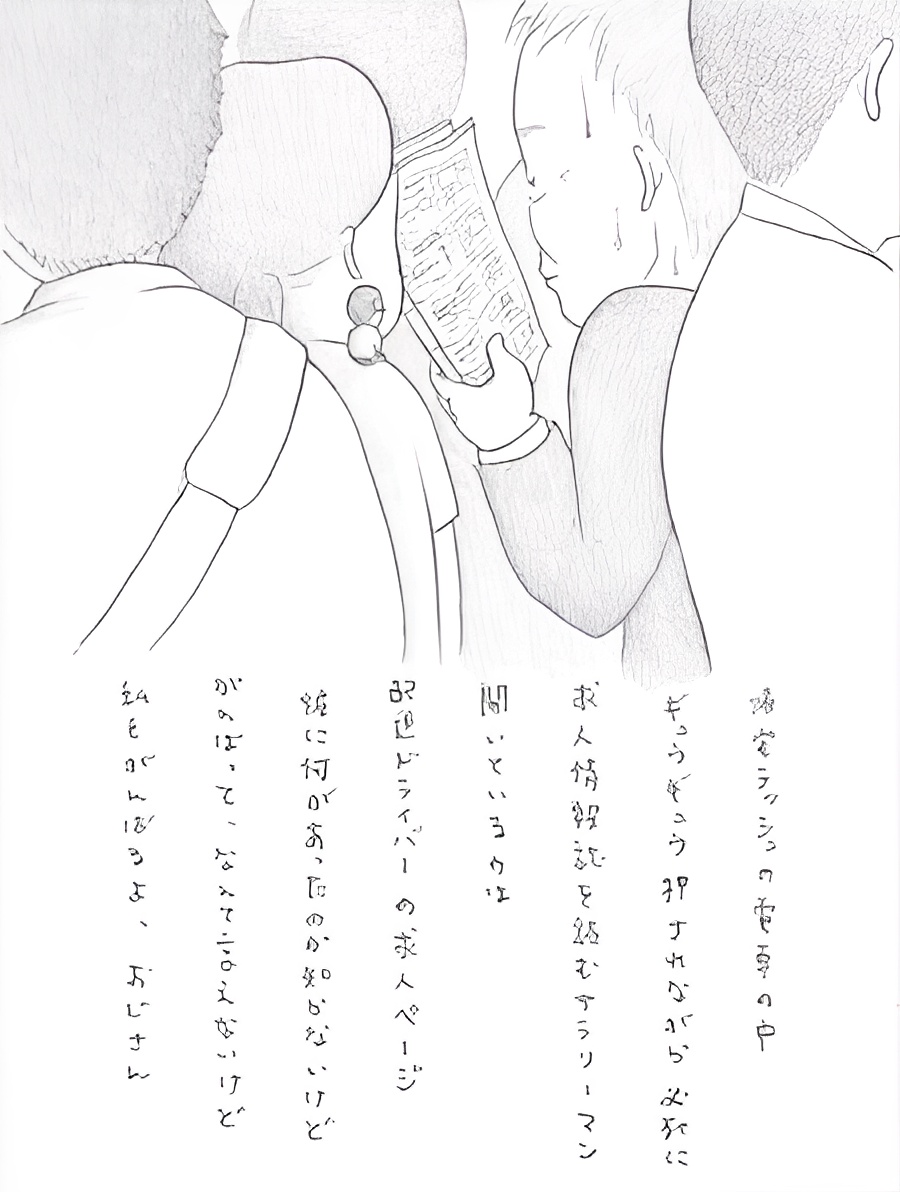 通学ラッシュの電車の中
ギュウギュウ押されながら必死に
求人情報誌を読むサラリーマン
開いているのは
配送ドライバーの求人ページ
彼に何があったのか知らないけど
がんばって、なんて言えないけど
私もがんばるよ、おじさん